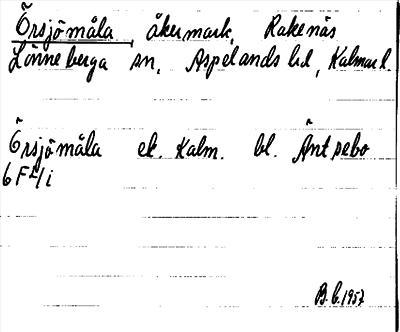 Örsjömåla, åkermark, Rakenäs
Lönneberga sn, Aspelands hd, Kalmar l.
Örsjömåla ek. Kalm. bl. Äntsebo
6 F
B.G. 1957